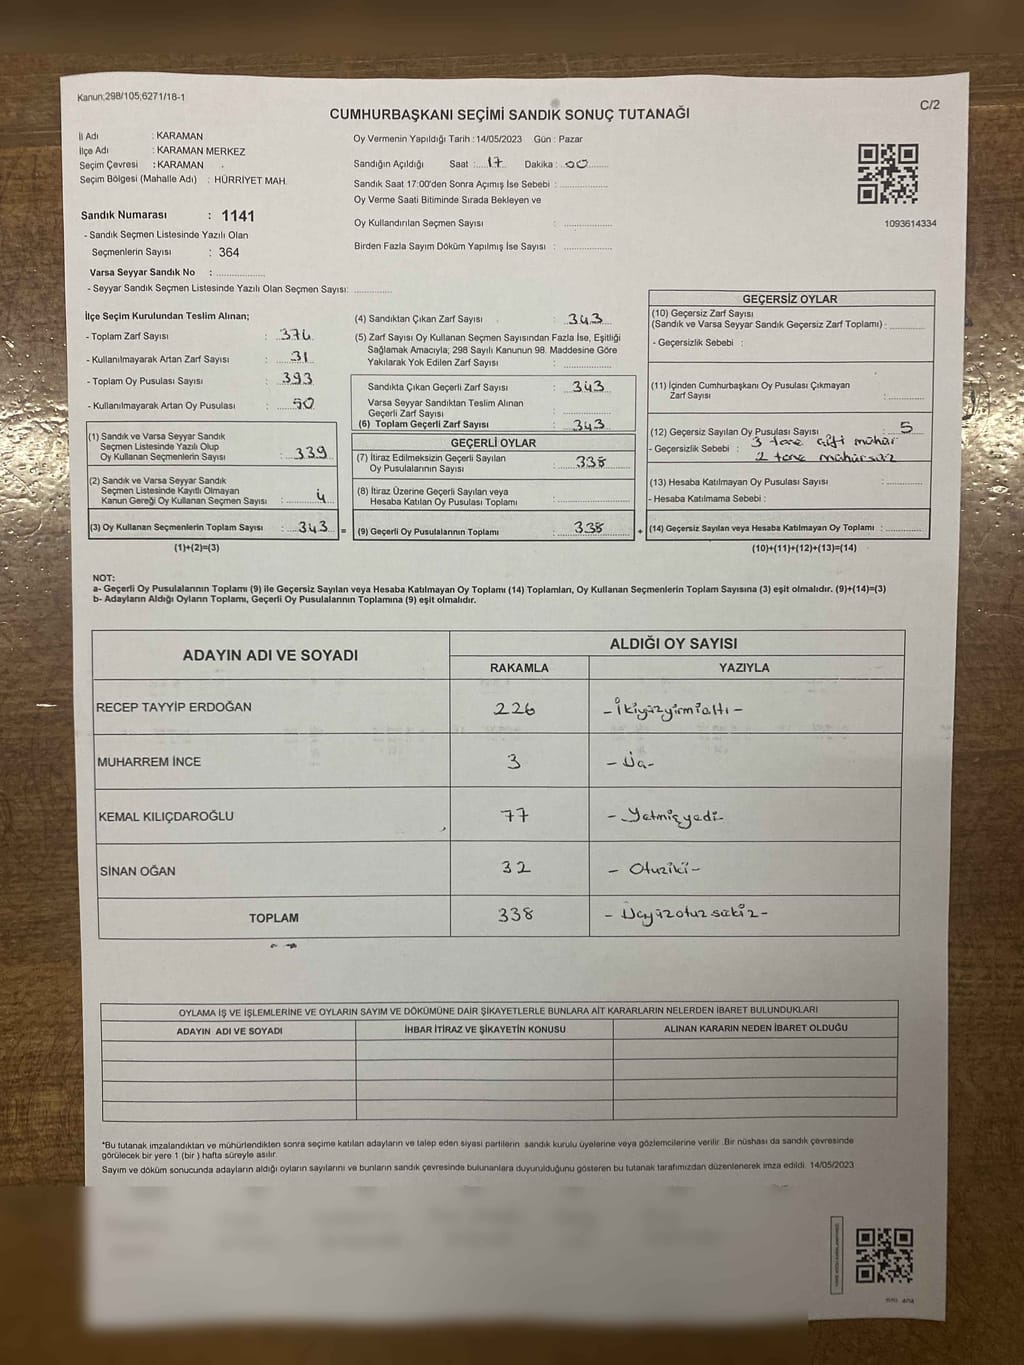 Kanun;298/105;6271/18-1
C/2
CUMHURBAŞKANI SEÇİMİ SANDIK SONUÇ TUTANAĞI
İl Adı : KARAMAN
İlçe Adı : KARAMAN MERKEZ
Seçim Çevresi : KARAMAN
Seçim Bölgesi (Mahalle Adı) : HÜRRİYET MAH.
Sandık Numarası : 1141
- Sandık Seçmen Listesinde Yazılı Olan
Seçmenlerin Sayısı : 364
Varsa Seyyar Sandık No : ................
- Seyyar Sandık Seçmen Listesinde Yazılı Olan Seçmen Sayısı: ............
Oy Vermenin Yapıldığı Tarih : 14/05/2023 Gün : Pazar
Sandığın Açıldığı Saat : 17 Dakika : 00
Sandık Saat 17:00'den Sonra Açımış İse Sebebi : ................
Oy Verme Saati Bitiminde Sırada Bekleyen ve
Oy Kullandırılan Seçmen Sayısı : ................
Birden Fazla Sayım Döküm Yapılmış İse Sayısı : ................
1093614334
İlçe Seçim Kurulundan Teslim Alınan;
- Toplam Zarf Sayısı : 374
- Kullanılmayarak Artan Zarf Sayısı : 31
- Toplam Oy Pusulası Sayısı : 393
- Kullanılmayarak Artan Oy Pusulası : 50
(1) Sandık ve Varsa Seyyar Sandık
Seçmen Listesinde Yazılı Olup
Oy Kullanan Seçmenlerin Sayısı : 339
(2) Sandık ve Varsa Seyyar Sandık
Seçmen Listesinde Kayıtlı Olmayan
Kanun Gereği Oy Kullanan Seçmen Sayısı : 4
(3) Oy Kullanan Seçmenlerin Toplam Sayısı : 343 =
(1)+(2)=(3)
(4) Sandıktan Çıkan Zarf Sayısı : 343
(5) Zarf Sayısı Oy Kullanan Seçmen Sayısından Fazla İse, Eşitliği
Sağlamak Amacıyla; 298 Sayılı Kanunun 98. Maddesine Göre
Yakılarak Yok Edilen Zarf Sayısı : ................
Sandıkta Çıkan Geçerli Zarf Sayısı : 343
Varsa Seyyar Sandıktan Teslim Alınan
Geçerli Zarf Sayısı : ................
(6) Toplam Geçerli Zarf Sayısı : 343
GEÇERLİ OYLAR
(7) İtiraz Edilmeksizin Geçerli Sayılan
Oy Pusulalarının Sayısı : 338
(8) İtiraz Üzerine Geçerli Sayılan veya
Hesaba Katılan Oy Pusulası Toplamı : ................
(9) Geçerli Oy Pusulalarının Toplamı : 338 +
GEÇERSİZ OYLAR
(10) Geçersiz Zarf Sayısı
(Sandık ve Varsa Seyyar Sandık Geçersiz Zarf Toplamı) : ............
- Geçersizlik Sebebi :
(11) İçinden Cumhurbaşkanı Oy Pusulası Çıkmayan
Zarf Sayısı : ............
(12) Geçersiz Sayılan Oy Pusulası Sayısı : 5
- Geçersizlik Sebebi : 3 tane çift mühür
2 tane mühürsüz
(13) Hesaba Katılmayan Oy Pusulası Sayısı : ............
- Hesaba Katılmama Sebebi :
(14) Geçersiz Sayılan veya Hesaba Katılmayan Oy Toplamı : ............
(10)+(11)+(12)+(13)=(14)
NOT:
a- Geçerli Oy Pusulalarının Toplamı (9) ile Geçersiz Sayılan veya Hesaba Katılmayan Oy Toplamı (14) Toplamları, Oy Kullanan Seçmenlerin Toplam Sayısına (3) eşit olmalıdır. (9)+(14)=(3)
b- Adayların Aldığı Oyların Toplamı, Geçerli Oy Pusulalarının Toplamına (9) eşit olmalıdır.
ADAYIN ADI VE SOYADI ALDIĞI OY SAYISI
RAKAMLA YAZIYLA
RECEP TAYYİP ERDOĞAN 226 -İkiyüzyirmialtı-
MUHARREM İNCE 3 -Üç-
KEMAL KILIÇDAROĞLU 77 -Yetmişyedi-
SİNAN OĞAN 32 -Otuziki-
TOPLAM 338 -Üçyüzotuzsekiz-
OYLAMA İŞ VE İŞLEMLERİNE VE OYLARIN SAYIM VE DÖKÜMÜNE DAİR ŞİKAYETLERLE BUNLARA AİT KARARLARIN NELERDEN İBARET BULUNDUKLARI
ADAYIN ADI VE SOYADI İHBAR İTİRAZ VE ŞİKAYETİN KONUSU ALINAN KARARIN NEDEN İBARET OLDUĞU
*Bu tutanak imzalandıktan ve mühürlendikten sonra seçime katılan adayların ve talep eden siyasi partilerin sandık kurulu üyelerine veya gözlemcilerine verilir .Bir nüshası da sandık çevresinde
görülecek bir yere 1 (bir ) hafta süreyle asılır.
Sayım ve döküm sonucunda adayların aldığı oyların sayılarını ve bunların sandık çevresinde bulunanlara duyurulduğunu gösteren bu tutanak tarafımızdan düzenlenerek imza edildi. 14/05/2023